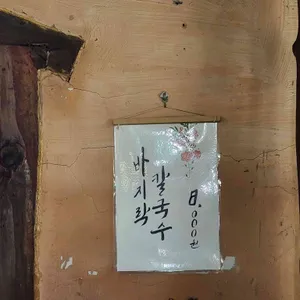 바지락
칼국수
8.000원